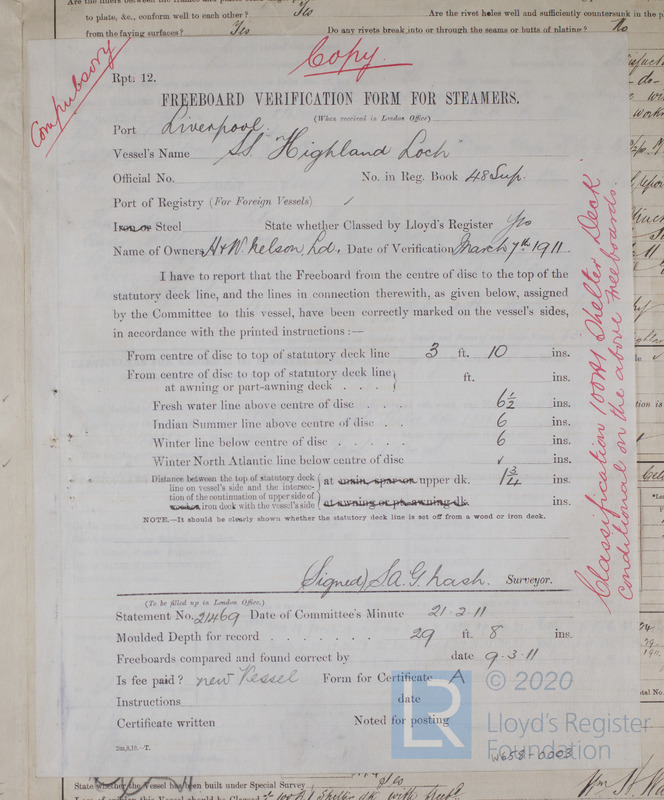 to plate, &c., conform well to each other? Yes
Are the rivet holes well and sufficiently countersunk in the
from the faying surfaces? Yes
Do any rivets break into or through the seams or butts of plating? No
Copy
Compulsory
Rpt. 12.
FREEBOARD VERIFICATION FORM FOR STEAMERS.
(When received in London Office)
Port Liverpool.
Vessel's Name SS "Highland Loch"
Official No. No. in Reg. Book 48 Sup.
Port of Registry (For Foreign Vessels) /
Iron or Steel State whether Classed by Lloyd's Register Yes
Name of Owners H & W Nelson, Ld. Date of Verification March 7th 1911
I have to report that the Freeboard from the centre of disc to the top of the
statutory deck line, and the lines in connection therewith, as given below, assigned
by the Committee to this vessel, have been correctly marked on the vessel's sides,
in accordance with the printed instructions :—
From centre of disc to top of statutory deck line 3 ft. 10 ins.
From centre of disc to top of statutory deck line
at awning or part-awning deck . . . ft. ins.
Fresh water line above centre of disc . . . 6½ ins.
Indian Summer line above centre of disc . . 6 ins.
Winter line below centre of disc . . . . . 6 ins.
Winter North Atlantic line below centre of disc ✓ ins.
Distance between the top of statutory deck
line on vessel's side and the intersec-
tion of the continuation of upper side of
wooden iron deck with the vessel's side
at main, spar or upper dk. 1¾ ins.
at awning or pt. awning dk. ins.
NOTE.—It should be clearly shown whether the statutory deck line is set off from a wood or iron deck.
(Signed) S.A.G. Nash. Surveyor.
(To be filled up in London Office.)
Statement No. 21469 Date of Committee's Minute 21·2·11
Moulded Depth for record . . . . . . . 29 ft. 8 ins.
Freeboards compared and found correct by date 9·3·11
Is fee paid? new Vessel Form for Certificate A
Instructions date
Certificate written Noted for posting
2m,8,10.-T.
Classification 100A1 Shelter Deck
conditional on the above freeboards.
© 2020
LR
Lloyd's Register
Foundation
W658-0003
State whether the Vessel has been built under Special Survey Yes